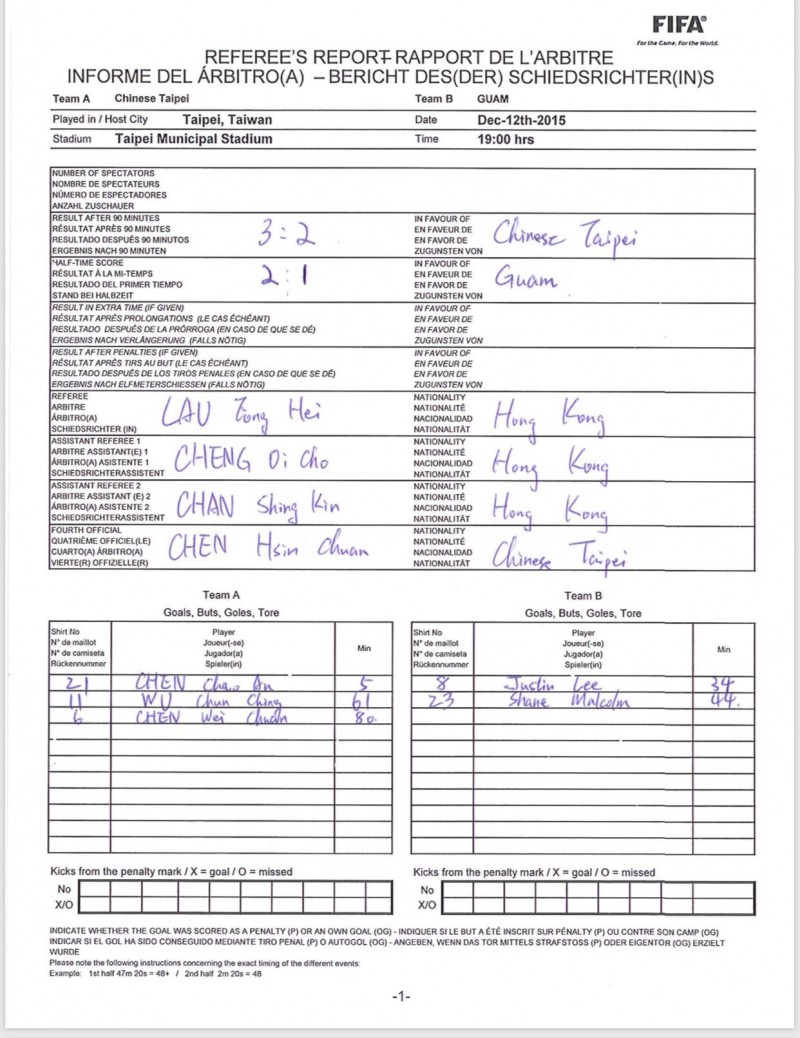 FIFA®
For the Game. For the World.
REFEREE'S REPORT-RAPPORT DE L'ARBITRE
INFORME DEL ÁRBITRO(A) – BERICHT DES(DER) SCHIEDSRICHTER(IN)S
Team A Chinese Taipei Team B GUAM
Played in / Host City Taipei, Taiwan Date Dec-12th-2015
Stadium Taipei Municipal Stadium Time 19:00 hrs
NUMBER OF SPECTATORS
NOMBRE DE SPECTATEURS
NÚMERO DE ESPECTADORES
ANZAHL ZUSCHAUER
RESULT AFTER 90 MINUTES
RÉSULTAT APRÈS 90 MINUTES
RESULTADO DESPUÉS 90 MINUTOS
ERGEBNIS NACH 90 MINUTEN
3:2
IN FAVOUR OF
EN FAVEUR DE
EN FAVOR DE
ZUGUNSTEN VON
Chinese Taipei
HALF-TIME SCORE
RÉSULTAT À LA MI-TEMPS
RESULTADO DEL PRIMER TIEMPO
STAND BEI HALBZEIT
2:1
IN FAVOUR OF
EN FAVEUR DE
EN FAVOR DE
ZUGUNSTEN VON
Guam
RESULT IN EXTRA TIME (IF GIVEN)
RÉSULTAT APRÈS PROLONGATIONS (LE CAS ÉCHÉANT)
RESULTADO DESPUÉS DE LA PRÓRROGA (EN CASO DE QUE SE DÉ)
ERGEBNIS NACH VERLÄNGERUNG (FALLS NÖTIG)
IN FAVOUR OF
EN FAVEUR DE
EN FAVOR DE
ZUGUNSTEN VON
RESULT AFTER PENALTIES (IF GIVEN)
RÉSULTAT APRÈS TIRS AU BUT (LE CAS ÉCHÉANT)
RESULTADO DESPUÉS DE LOS TIROS PENALES (EN CASO DE QUE SE DÉ)
ERGEBNIS NACH ELFMETERSCHIESSEN (FALLS NÖTIG)
IN FAVOUR OF
EN FAVEUR DE
EN FAVOR DE
ZUGUNSTEN VON
REFEREE
ARBITRE
ÁRBITRO(A)
SCHIEDSRICHTER (IN)
LAU Fong Hei
NATIONALITY
NATIONALITÉ
NACIONALIDAD
NATIONALITÄT
Hong Kong
ASSISTANT REFEREE 1
ARBITRE ASSISTANT(E) 1
ÁRBITRO(A) ASISTENTE 1
SCHIEDSRICHTERASSISTENT
CHENG Oi Cho
NATIONALITY
NATIONALITÉ
NACIONALIDAD
NATIONALITÄT
Hong Kong
ASSISTANT REFEREE 2
ARBITRE ASSISTANT (E) 2
ÁRBITRO(A) ASISTENTE 2
SCHIEDSRICHTERASSISTENT
CHAN Shing Kin
NATIONALITY
NATIONALITÉ
NACIONALIDAD
NATIONALITÄT
Hong Kong
FOURTH OFFICIAL
QUATRIÈME OFFICIEL(LE)
CUARTO(A) ÁRBITRO(A)
VIERTE(R) OFFIZIELLE(R)
CHEN Hsin Chuan
NATIONALITY
NATIONALITÉ
NACIONALIDAD
NATIONALITÄT
Chinese Taipei
Team A
Goals, Buts, Goles, Tore
Shirt No
N° de maillot
N° de camiseta
Rückennummer
Player
Joueur(-se)
Jugador(a)
Spieler(in)
Min
21 CHEN Chao An 5
11 WU Chun Ching 61
6 CHEN Wei Chuan 80.
Team B
Goals, Buts, Goles, Tore
Shirt No
N° de maillot
N° de camiseta
Rückennummer
Player
Joueur(-se)
Jugador(a)
Spieler(in)
Min
8 Justin Lee 34
23 Shane Malcolm 44.
Kicks from the penalty mark / X = goal / O = missed
No
X/O
Kicks from the penalty mark / X = goal / O = missed
No
X/O
INDICATE WHETHER THE GOAL WAS SCORED AS A PENALTY (P) OR AN OWN GOAL (OG) - INDIQUER SI LE BUT A ÉTÉ INSCRIT SUR PÉNALTY (P) OU CONTRE SON CAMP (OG)
INDICAR SI EL GOL HA SIDO CONSEGUIDO MEDIANTE TIRO PENAL (P) O AUTOGOL (OG) - ANGEBEN, WENN DAS TOR MITTELS STRAFSTOSS (P) ODER EIGENTOR (OG) ERZIELT
WURDE
Please note the following instructions concerning the exact timing of the different events:
Example: 1st half 47m 20s = 48+ / 2nd half 2m 20s = 48
-1-